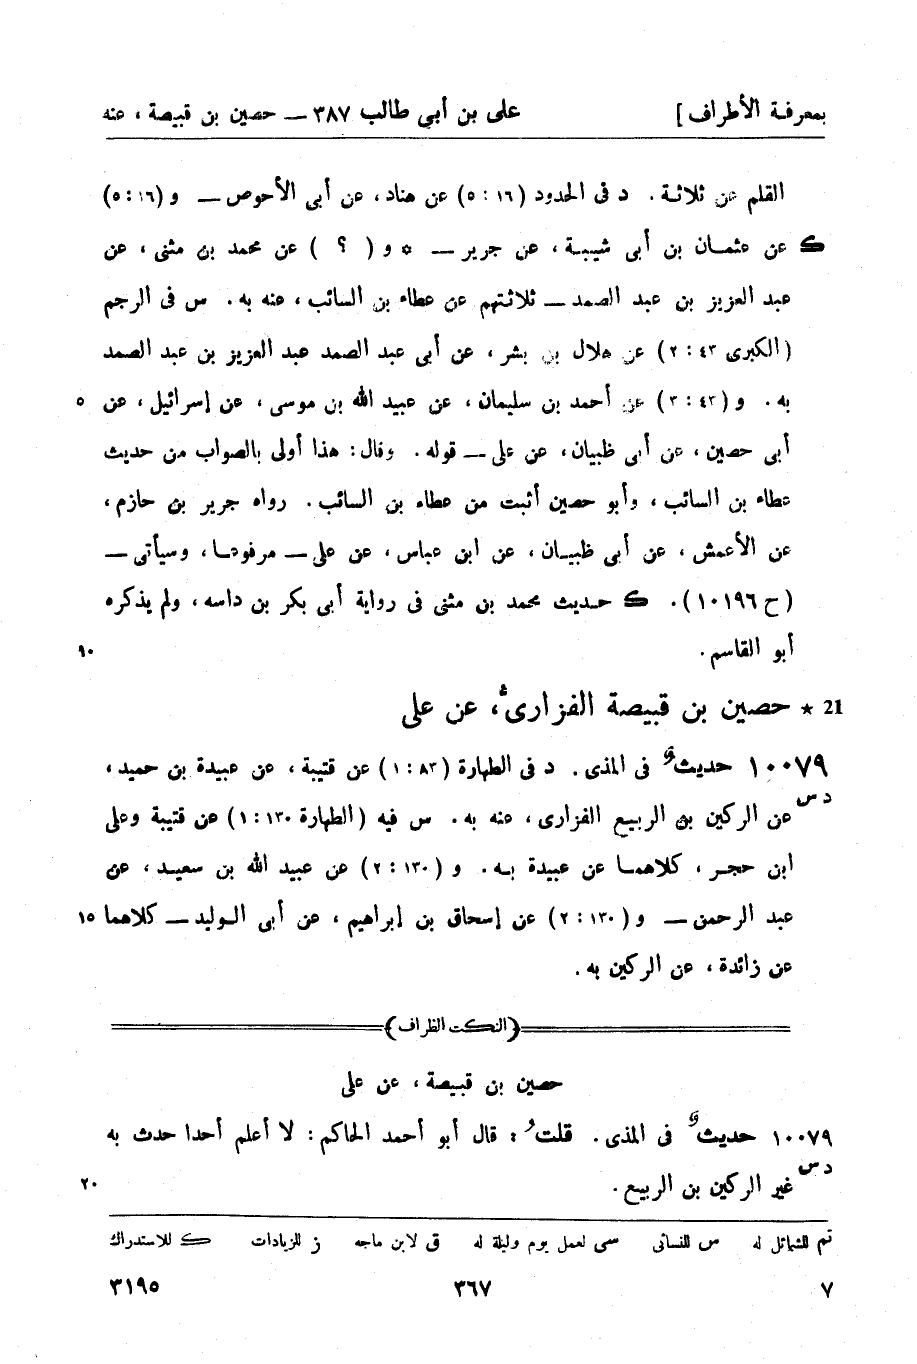 بمعرفة الأطراف ] على بن أبي طالب ٣٨٧ — حصين بن قبيصة ، عنه
القلم عن ثلاثة . د فى الحدود (١٦ : ٥) عن هناد، عن أبى الأحوص — و(١٦ : ٥)
ك عن عثمان بن أبى شيبة ، عن جرير — * و ( ؟ ) عن محمد بن مثنى ، عن
عبد العزيز بن عبد الصمد — ثلاثتهم عن عطاء بن السائب ، عنه به . س فى الرجم
(الكبرى ٤٣ : ٢) عن هلال بن بشر ، عن أبى عبد الصمد عبد العزيز بن عبد الصمد
به . و (٤٣ : ٣) عن أحمد بن سليمان ، عن عبيد الله بن موسى ، عن إسرائيل ، عن ٥
أبى حصين ، عن أبى ظبيان ، عن على — قوله . وقال : هذا أولى بالصواب من حديث
عطاء بن السائب ، وأبو حصين أثبت من عطاء بن السائب . رواه جرير بن حازم ،
عن الأعمش ، عن أبى ظبيان ، عن ابن عباس ، عن على — مرفوعا ، وسيأتى —
(ح ١٠١٩٦) . ك حديث محمد بن مثنى فى رواية أبى بكر بن داسه ، ولم يذكره
أبو القاسم . ١٠
21 * حصين بن قبيصة الفزارىُّ، عن على
١٠٠٧٩ حديثٌ فى المذى . د فى الطهارة (٨٣ : ١) عن قتيبة ، عن عبيدة بن حميد ،
د س
عن الركين بن الربيع الفزارى ، عنه به . س فيه (الطهارة ١٣٠ : ١) عن قتيبة وعلى
ابن حجر ، كلاهما عن عبيدة به . و (١٣٠ : ٢) عن عبيد الله بن سعيد ، عن
عبد الرحمن — و (١٣٠ : ٢) عن إسحاق بن إبراهيم ، عن أبى الوليد — كلاهما ١٥
عن زائدة ، عن الركين به .
(النكت الظراف)
حصين بن قبيصة ، عن على
١٠٠٧٩ حديثٌ فى المذى . قلتُ : قال أبو أحمد الحاكم : لا أعلم أحدا حدث به
د س
غير الركين بن الربيع . ٢٠
تم للشمائل له س للنسائى سى لعمل يوم وليلة له ق لابن ماجه ز للزيادات ك للاستدراك
٧ ٣٦٧ ٣١٩٥